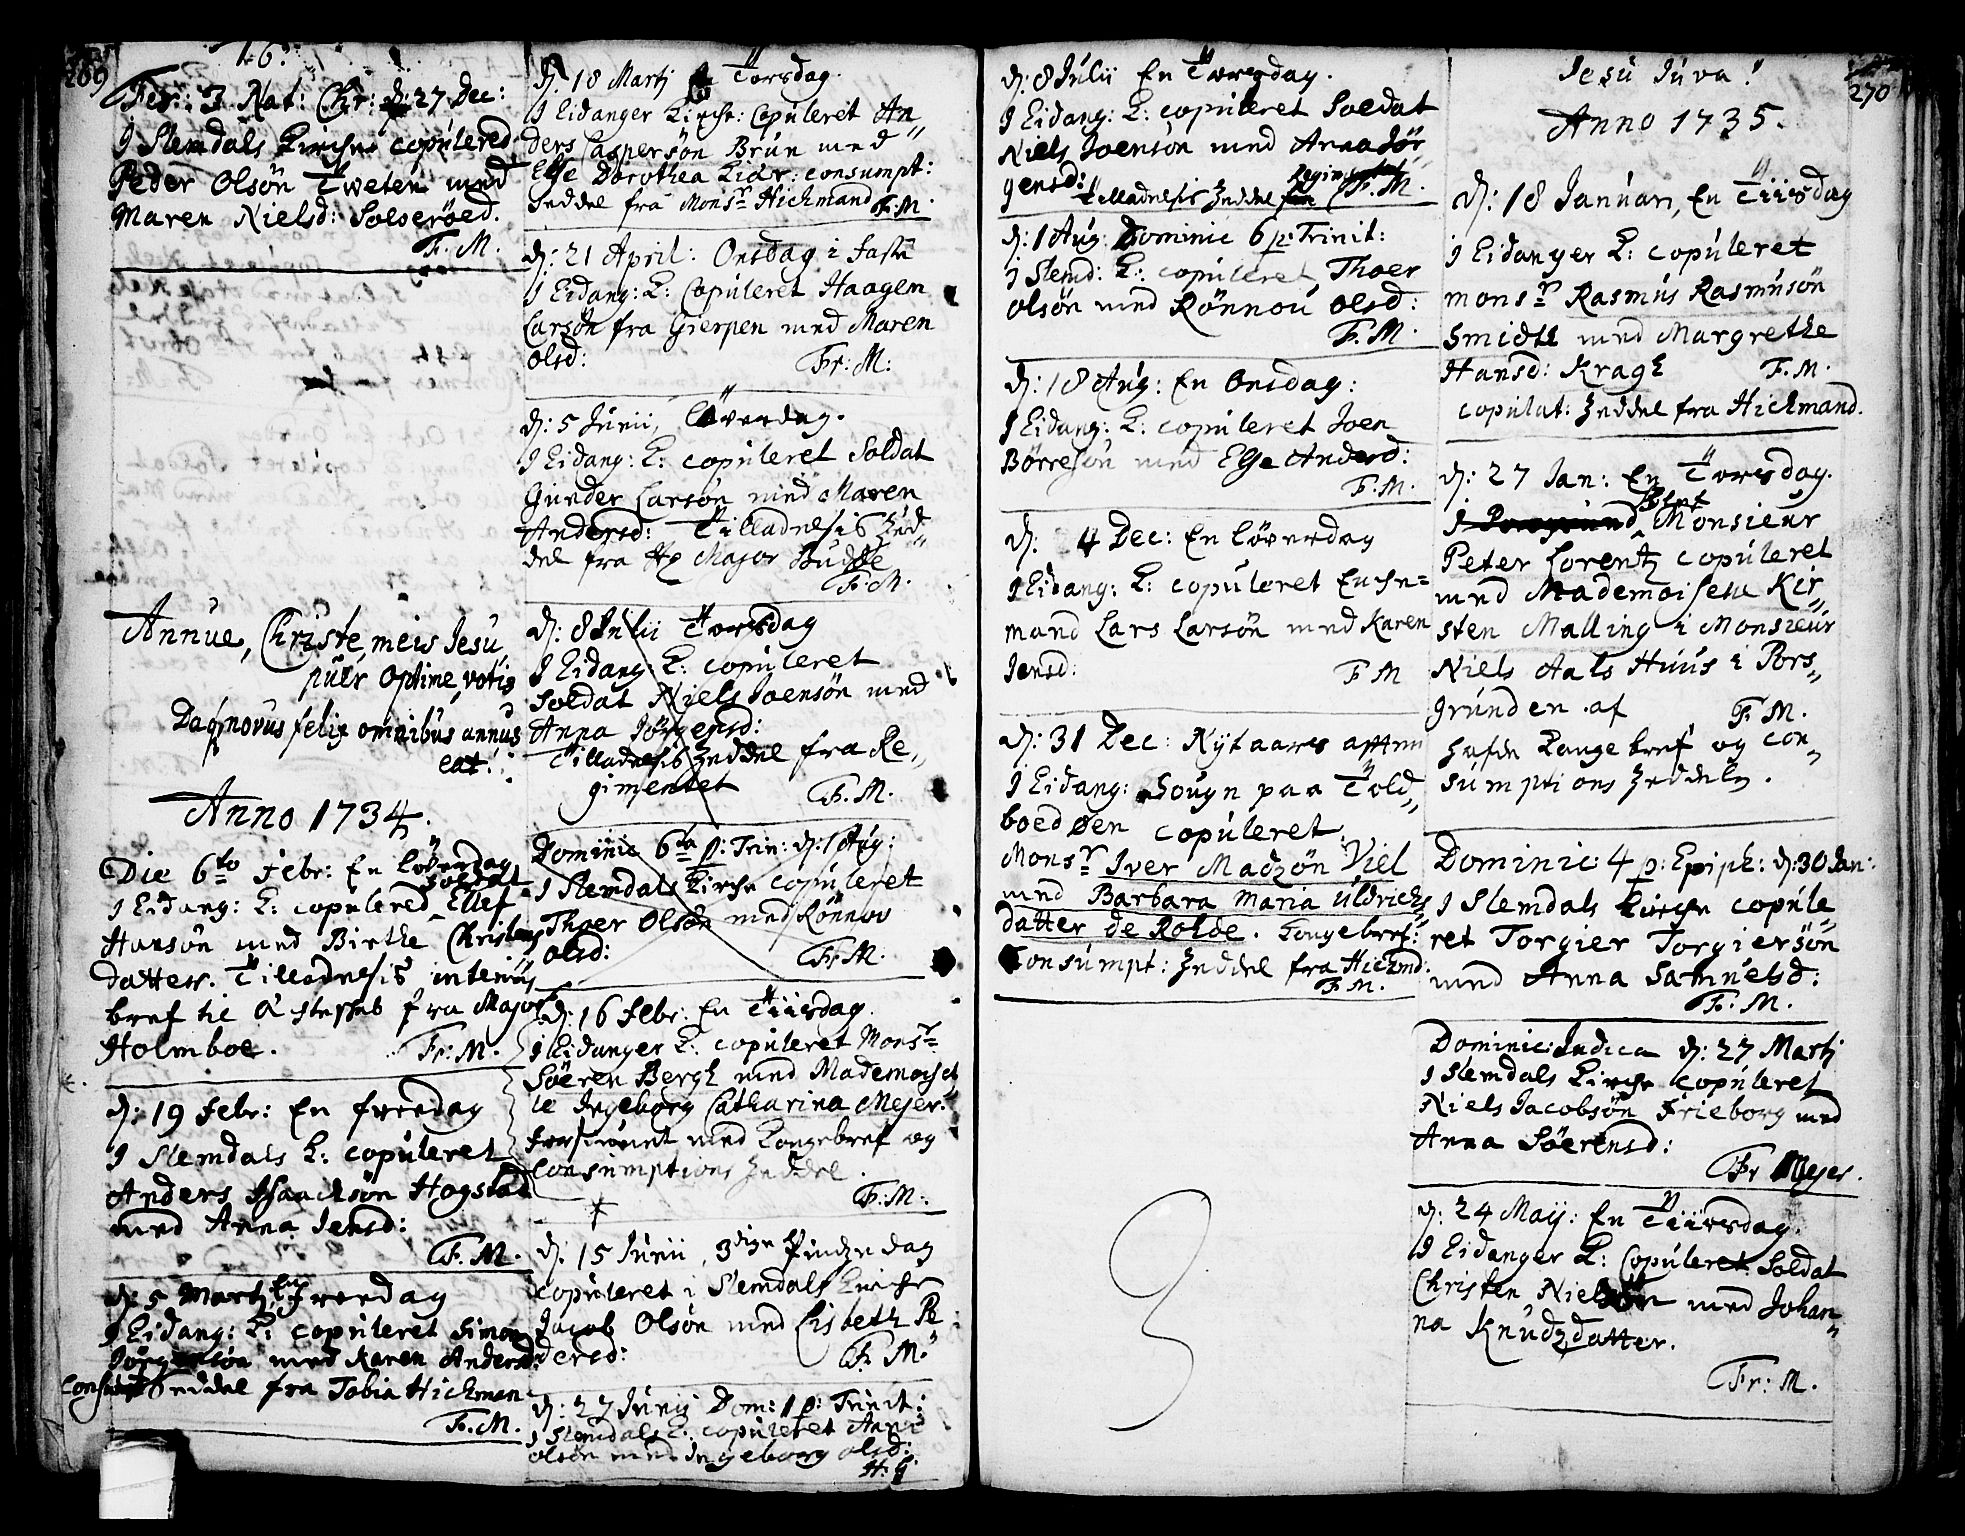 269
16.
Fer: 3 Nat: Chr: d: 27 Dec:
I Slemdals Kirche copulered
Peder Olsön Tweten med
Maren Nielsd: Solseröed.
F. M.
Annue, Christe, meis Jesu
puer optime, votis
Daqq novus felix omnibus annus
eat!
Anno 1734.
Die 6to Febr: En Löverdag
I Eidang: K: copulered Soldat Ellef
Hansön med Birthe Christens
datter. Tilladnelsis
bref til fra Major
Holmboe. Fr: M.
d: 19 Febr: En Freedag
I Slemdals K: copuleret
Anders Isaachsön Hogstad
med Anna Jensd:
F. M.
d: 5 Martj En Freedag
I Eidang: K: copuleret Simon
Jörgensön med Karen Andersd:
Consumpt Seddel fra Tobia Hichman
F. M.
d: 18 Martj En Torsdag.
I Eidanger Kirche: Copuleret An
ders Caspersön Brun med
Else Dorothea Lidr: consumpt:
Seddel fra Monsr Hichmand F. M.
d: 21 April: Onsdag i Faste
I Eidang: K: Copuleret Haagen
Larsön fra Gierpen med Maren
Olsd: Fr: M:
d: 5 Junii, Löverdag.
I Eidang: K: copuleret Soldat
Gunder Larsön med Maren
Andersd: Tilladnelsis Zed
del fra Hr Major Budde
F. M.
d: 8 Julii Torsdag
I Eidang: K: copuleret
Soldat Niels Joensön med
Anna Jörgensd:
Tilladnelsis Zeddel fra Re„
gimentet F. M.
Dominic 6ta p: Trin: d: 1 Aug:
I Slemdals Kirche copuleret
Thoer Olsön med Rönnov
Olsd: Fr. M.
d: 16 Febr: En Tiirsdag.
I Eidanger K: copuleret Monsr
Söeren Bergh med Mademoisel
le Ingeborg Catharina Mejer.
forsiunet med Kongebref og
Consumptions Zeddel.
F. M.
d: 15 Junii, 3dige Pindze dag
copuleret i Slemdals Kirche
Jacob Olsön med Lisbeth Pe
dersd: F. M.
d: 27 Junij Dom: 1 p: Trinit:
I Slemdals K: copuleret
Olsön med Ingeborg Olsd:
H. G
d: 8 Julii En Torsdag.
I Eidang: K: copuleret Soldat
Niels Joensön med Anna Jör„
gensd: Tilladnelsis Zeddel fra Regimentet F. M.
d: 1 Aug: Dominic 6 p: Trinit:
I Slemd: K: copuleret Thoer
Olsön med Rönnou Olsd:
F. M.
d: 18 Aug: En Onsdag:
I Eidang: K: copuleret Joen
Börresön med Else Andersd:
F. M.
d: 4 Dec: En Löverdag
I Eidang: K: copuleret Enche=
mand Lars Larsön med Karen
Jensd: F M
d: 31 Dec: Nytaars afften
I Eidang: Sougn paa Told„
boed øen copuleret
Monsr Iver Madzön Viel
med Barbara Maria Uldrichs
datter de Rolde. Kongebref:
Consumpt: Zeddel fra Hickmd.
F. M.
3
270
Jesu Juva!
Anno 1735.
d: 18 Januari, En Tiirsdag
I Eidanger K: copuleret
Monsr Rasmus Rasmusön
Smidth med Margrethe
Hansd: Kragh F. M.
copulat: Zeddel fra Hichmand.
d: 27 Jan: En Torsdag.
I Porsgrund Monsieur
Peter Lorentz copuleret
med Mademoiselle Kir„
sten Malling i Monsieur
Niels Aals Huus i Pors„
grunden af F. M.
hafde Konge bref og con„
sumptions Zeddeln.
Dominic: 4 p: Epiph: d: 30 Jan:
I Slemdals Kirche copule„
ret Torgier Torgiersön
med Anna Samuelsd:
F. M.
Dominic: Judica d: 27 Martj
I Slemdals Kirche copuleret
Niels Jacobsön Frieborg med
Anna Söerensd:
Fr Mejer.
d: 24 Maij: En Tiirsdag.
I Eidanger K: Copuleret Soldat
Christen Nielsön med Johan„
na Knudzdatter.
Fr: M.